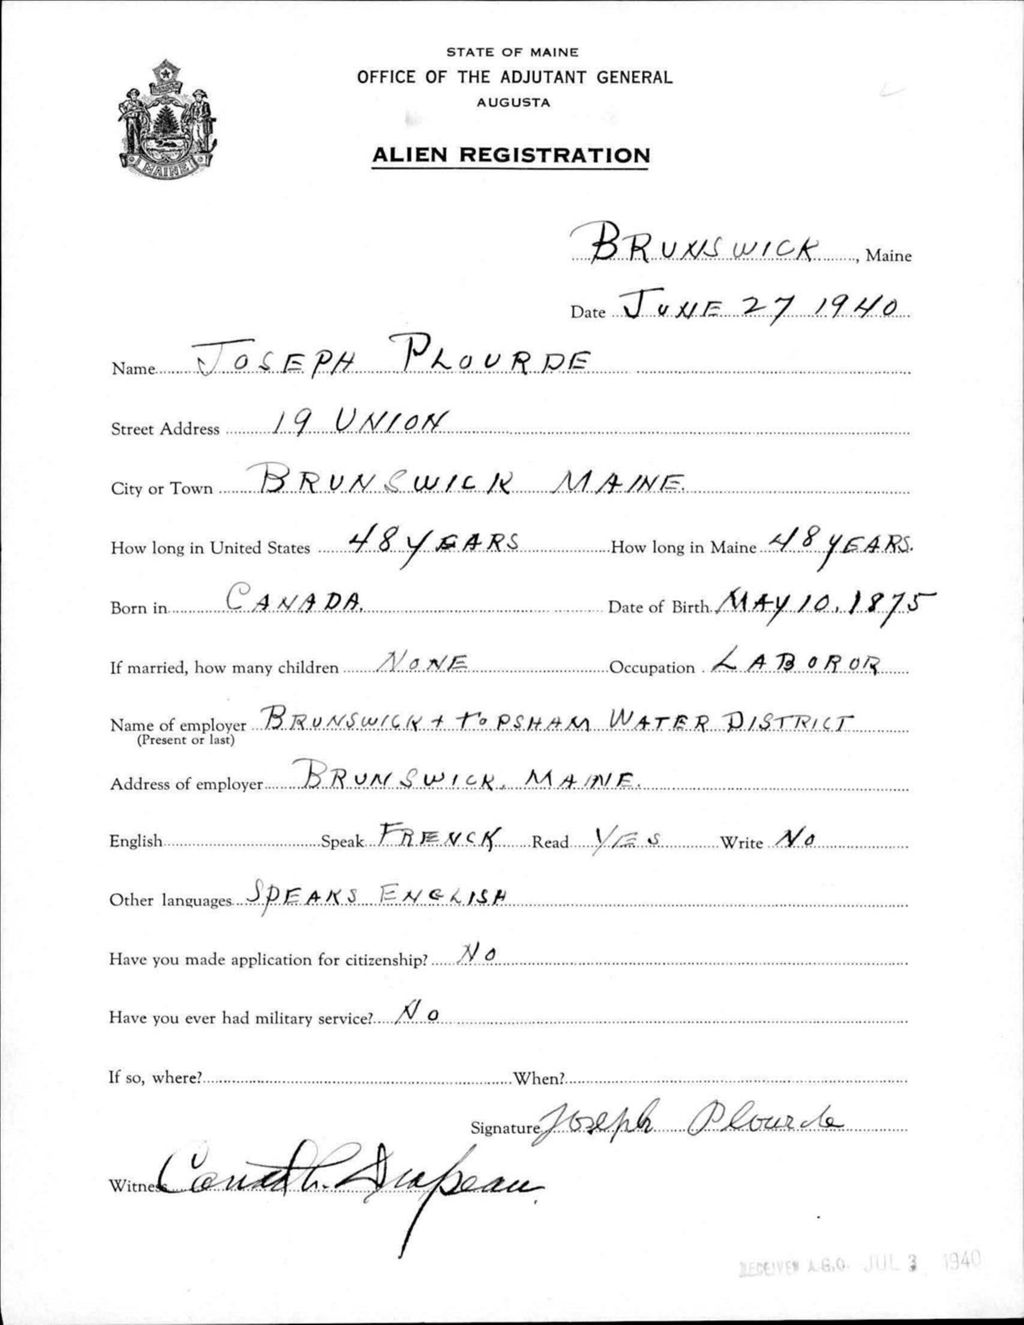 STATE OF MAINE
OFFICE OF THE ADJUTANT GENERAL
AUGUSTA
ALIEN REGISTRATION
MAINE
BRUNSWICK, Maine
Date JUNE 27 1940
Name JOSEPH PLOURDE
Street Address 19 UNION
City or Town BRUNSWICK MAINE.
How long in United States 48 YEARS How long in Maine 48 YEARS.
Born in CANADA. Date of Birth MAY 10, 1875
If married, how many children NONE Occupation LABOROR
Name of employer BRUNSWICK + TOPSHAM WATER DISTRICT
(Present or last)
Address of employer BRUNSWICK, MAINE.
English Speak FRENCK Read YES Write NO
Other languages SPEAKS ENGLISH
Have you made application for citizenship? NO
Have you ever had military service? NO
If so, where? When?
Signature Joseph Plourde
Witness Drapeau
RECEIVED A.G.O. JUL 3 1940